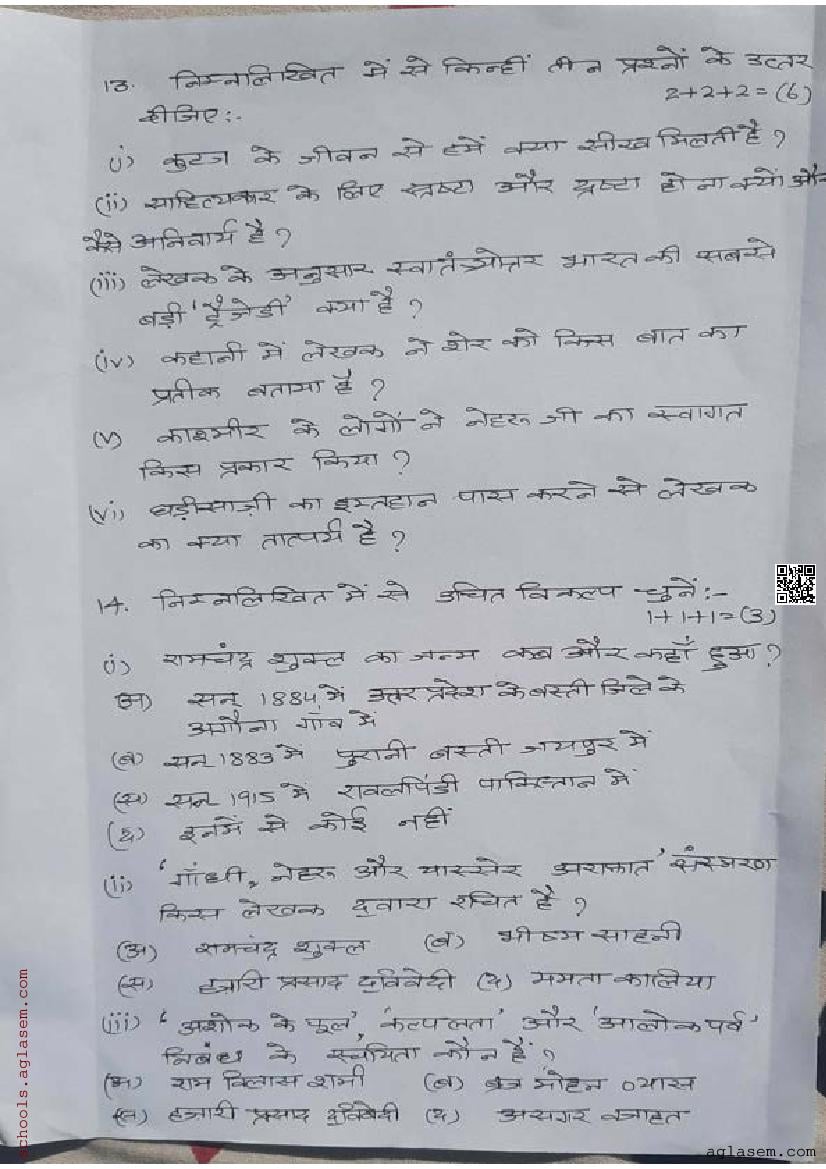 13. निम्नलिखित में से किन्हीं तीन प्रश्नों के उत्तर
2+2+2=(6)
दीजिए:-
(i) कुटज के जीवन से हमें क्या सीख मिलती है ?
(ii) साहित्यकार के लिए स्त्रष्टा और द्रष्टा होना क्यों और
कैसे अनिवार्य है ?
(iii) लेखक के अनुसार स्वातंत्र्योत्तर भारत की सबसे
बड़ी 'ट्रैजेडी' क्या है ?
(iv) कहानी में लेखक ने शेर को किस बात का
प्रतीक बताया है ?
(v) काश्मीर के लोगों ने नेहरू जी का स्वागत
किस प्रकार किया ?
(vi) घड़ीसाज़ी का इम्तहान पास करने से लेखक
का क्या तात्पर्य है ?
14. निम्नलिखित में से उचित विकल्प चुनें:-
1+1+1=(3)
(i) रामचंद्र शुक्ल का जन्म कब और कहाँ हुआ ?
(अ) सन् 1884 में उत्तर प्रदेश के बस्ती जिले के
अगौना गाँव में
(ब) सन् 1883 में पुरानी बस्ती जयपुर में
(स) सन् 1915 में रावलपिंडी पाकिस्तान में
(द) इनमें से कोई नहीं
(ii) 'गाँधी, नेहरू और यास्सेर अराफात' संस्मरण
किस लेखक द्वारा रचित है ?
(अ) रामचंद्र शुक्ल (ब) भीष्म साहनी
(स) हजारी प्रसाद द्विवेदी (द) ममता कालिया
(iii) 'अशोक के फूल', 'कल्पलता' और 'आलोक पर्व'
निबंध के रचयिता कौन हैं ?
(अ) राम विलास शर्मा (ब) ब्रज मोहन व्यास
(स) हजारी प्रसाद द्विवेदी (द) असगर वजाहत
schools.aglasem.com
aglasem.com